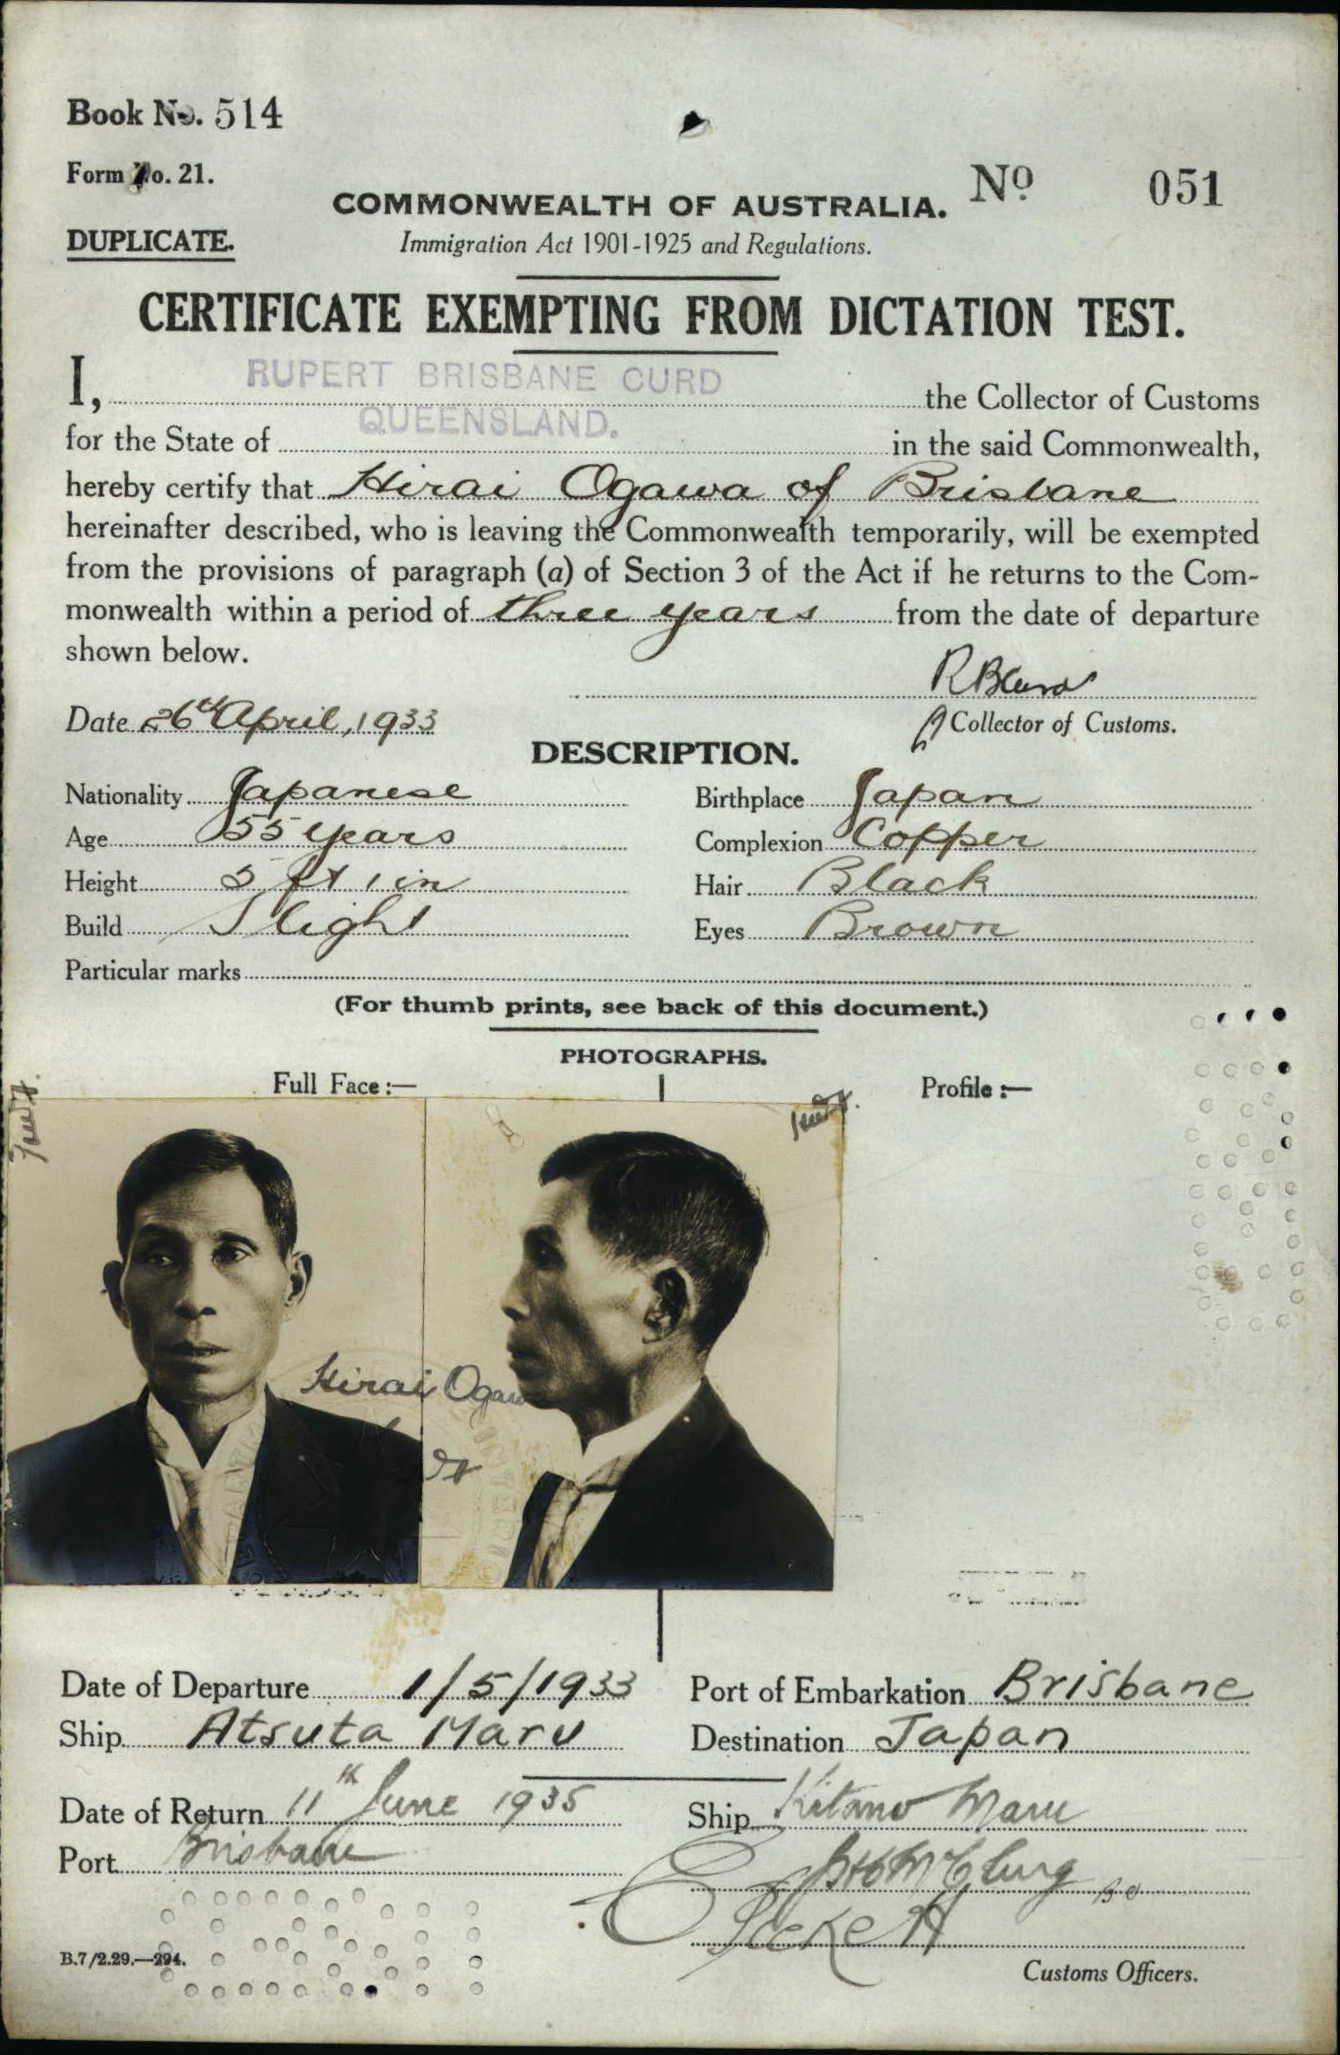 Book No. 514
Form No. 21.
DUPLICATE.
COMMONWEALTH OF AUSTRALIA.
Nº 051
Immigration Act 1901-1925 and Regulations.
CERTIFICATE EXEMPTING FROM DICTATION TEST.
I, RUPERT BRISBANE CURD the Collector of Customs
for the State of QUEENSLAND. in the said Commonwealth,
hereby certify that Hirai Ogawa of Brisbane
hereinafter described, who is leaving the Commonwealth temporarily, will be exempted
from the provisions of paragraph (a) of Section 3 of the Act if he returns to the Com-
monwealth within a period of three years from the date of departure
shown below.
R B Curd
Date 26th April, 1933
Collector of Customs.
DESCRIPTION.
Nationality Japanese Birthplace Japan
Age 55 years Complexion Copper
Height 5 ft 1 in Hair Black
Build Slight Eyes Brown
Particular marks
(For thumb prints, see back of this document.)
PHOTOGRAPHS.
Full Face:— Profile:—
Hirai Ogawa
Date of Departure 1/5/1933 Port of Embarkation Brisbane
Ship Atsuta Maru Destination Japan
Date of Return 11th June 1935 Ship Kitano Maru
Port Brisbane
Customs Officers.
B.7/2.29.—294.